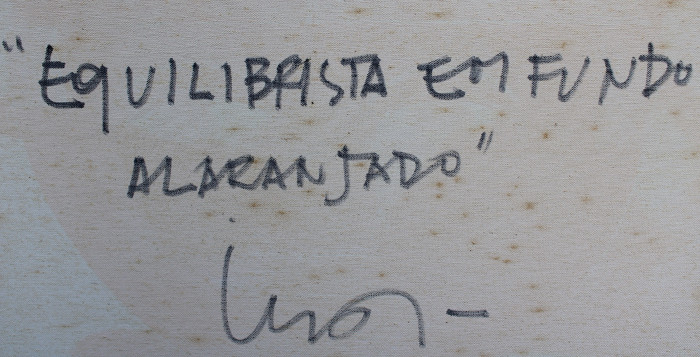 "EQUILIBRISTA EM FUNDO
ALARANJADO"